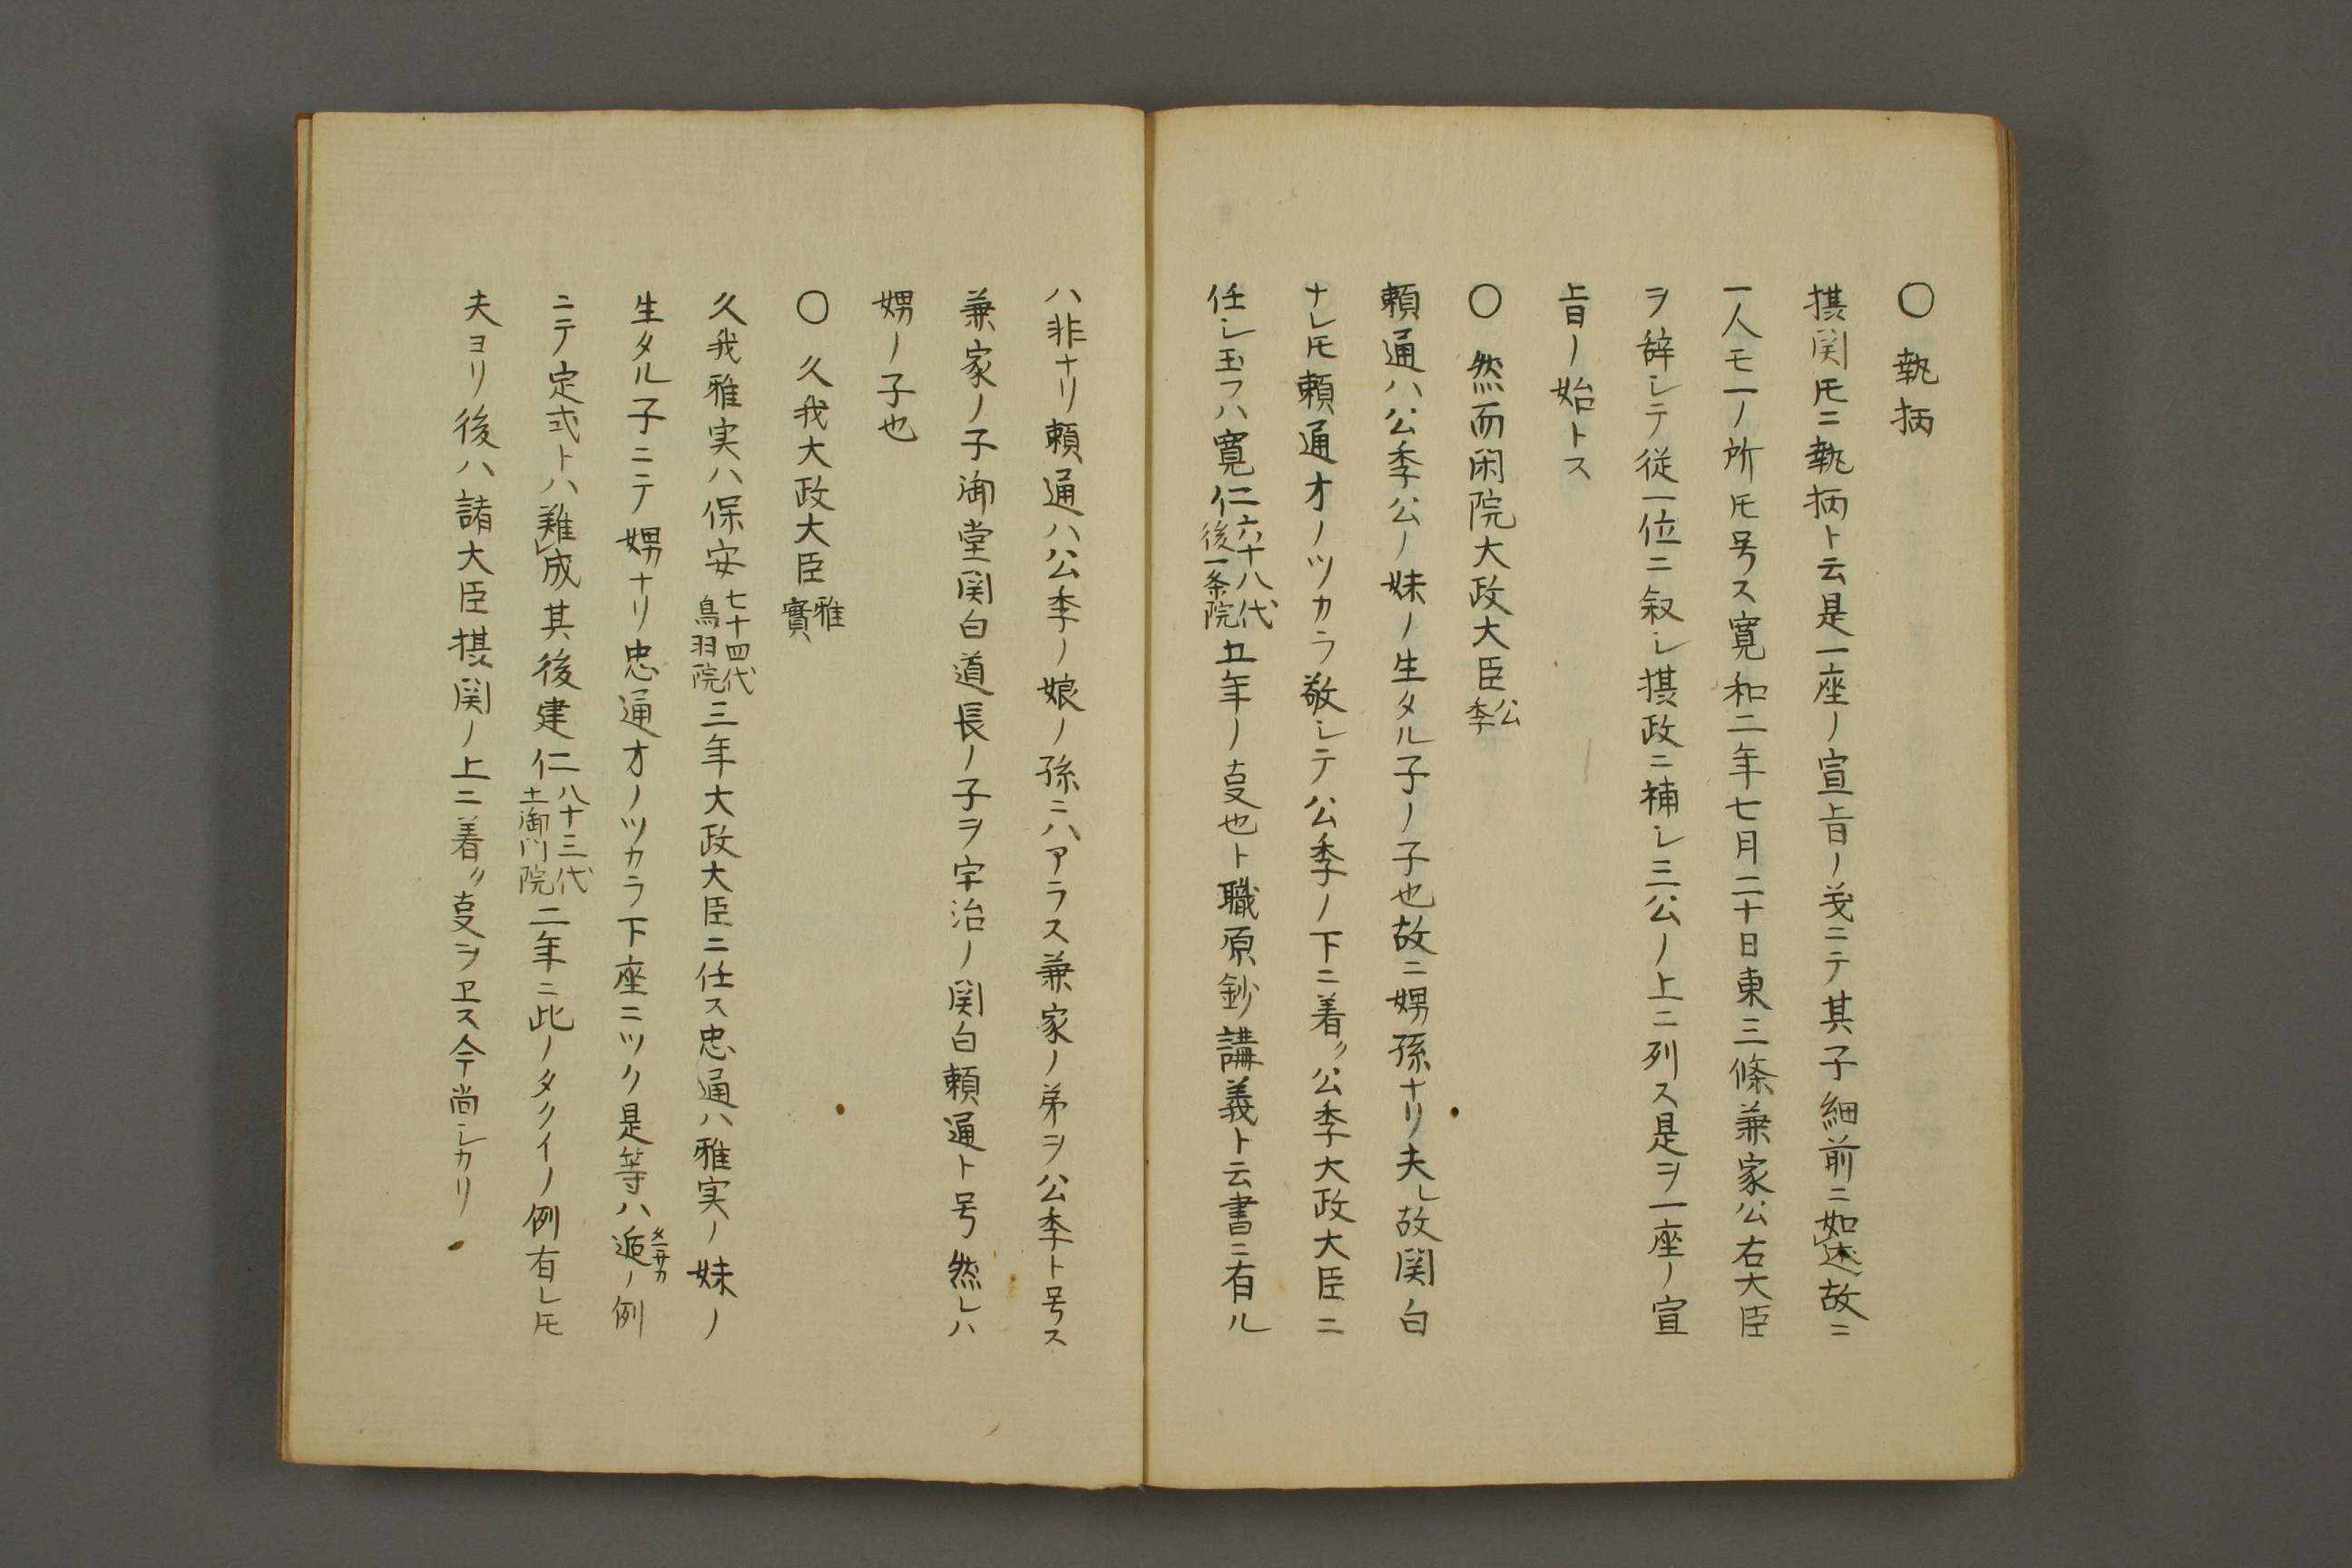 〇 執柄
摂関𪜈ニ執柄ト云是一座ノ宣旨ノ義ニテ其子細前ニ如述故ニ
一人モ一ノ所𪜈号ス寛和二年七月二十日東三條兼家公右大臣
ヲ辞シテ従一位ニ叙シ摂政ニ補シ三公ノ上ニ列ス是ヲ一座ノ宣
旨ノ始トス
〇 然而閑院大政大臣公季
頼通ハ公季公ノ妹ノ生タル子ノ子也故ニ甥孫ナリ夫レ故関白
ナレ𪜈頼通オノツカラ敬シテ公季ノ下ニ着ク公季大政大臣ニ
任シ玉フハ寛仁六十八代後一条院五年ノ叓也ト職原鈔講義ト云書ニ有ル
ハ非ナリ頼通ハ公季ノ娘ノ孫ニハアラス兼家ノ弟ヲ公季ト号ス
兼家ノ子御堂関白道長ノ子ヲ宇治ノ関白頼通ト号然レハ
甥ノ子也
〇 久我大政大臣雅實
久我雅実ハ保安七十四代鳥羽院三年大政大臣ニ任ス忠通ハ雅実ノ妹ノ
生タル子ニテ甥ナリ忠通オノツカラ下座ニツク是等ハ逅タマサカノ例
ニテ定式トハ難レ成其後建仁八十三代土御門院二年ニ此ノタクイノ例有レ𪜈
夫ヨリ後ハ諸大臣摂関ノ上ニ着ク叓ヲヱス今尚シカリ